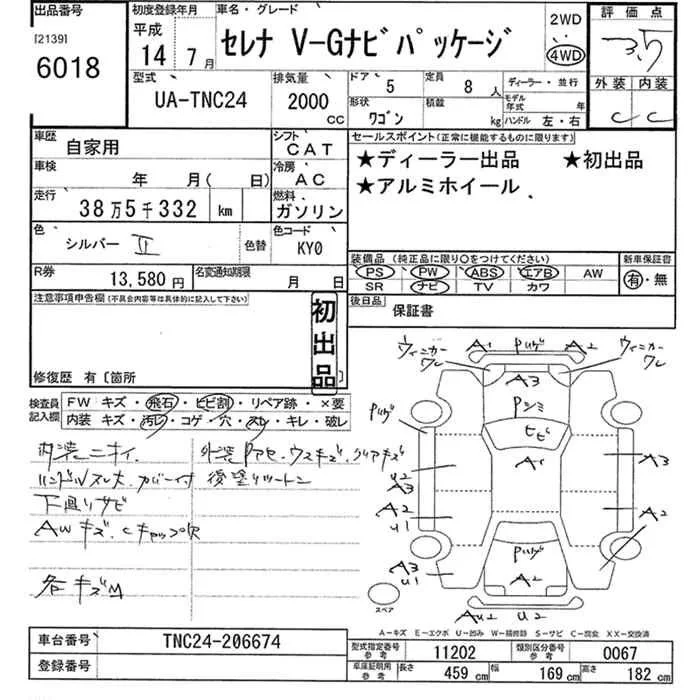 出品番号
[2139]
6018
初度登録年月
平成
14 年 7 月
車名・グレード
セレナ V-Gナビパッケージ
2WD
4WD
評価点
3.5
外装 内装
C C
型式
UA-TNC24
排気量
2000
CC
ドア
5
定員
8 人
形状
ワゴン
積載
kg
ディーラー・並行
モデル年式 年
ハンドル 左・右
車歴
自家用
シフト
CAT
車検
年 月( 日)
冷房
AC
走行
38万5千332 km
燃料
ガソリン
色
シルバー II
色替
色コード
KY0
R券
13,580 円
名変通知期限
月 日
セールスポイント(正常に機能するものに限ります)
★ディーラー出品 ★初出品
★アルミホイール
装備品 (純正品に限り○をつけてください)
PS PW ABS エアB AW
SR ナビ TV カワ
新車保証書
有・無
後日品
保証書
注意事項申告欄(不具合内容等は具体的に記入して下さい)
初出品
修復歴 有〔箇所 〕
検査員記入欄
FW キズ・飛石・ヒビ割・リペア跡・×要
内装 キズ・汚レ・コゲ・穴・スレ・キレ・破レ
内装ニオイ.
ハンドルスレ大.カバー付
下廻りサビ
AWキズ.Cキャップ欠
各キズM
外装Pアセ.ウスキズ.クリアキズ
後塗りツートン
ウィンカーワレ
A1 Pハゲ A2
ウィンカーワレ
A3
Pシミ
Pハゲ
ヒビ
A1
U2
A3
A3
A2
U1
A2
A3
U1
Pハゲ
A2
AU2 U2
スペア
A-キズ E-エクボ U-凹み W-補修跡 S-サビ C-腐食 XX-交換済
車台番号
TNC24-206674
登録番号
型式指定番号 参考
11202
類別区分番号 参考
0067
車庫証明用 参考
長さ 459 cm
幅 169 cm
高さ 182 cm